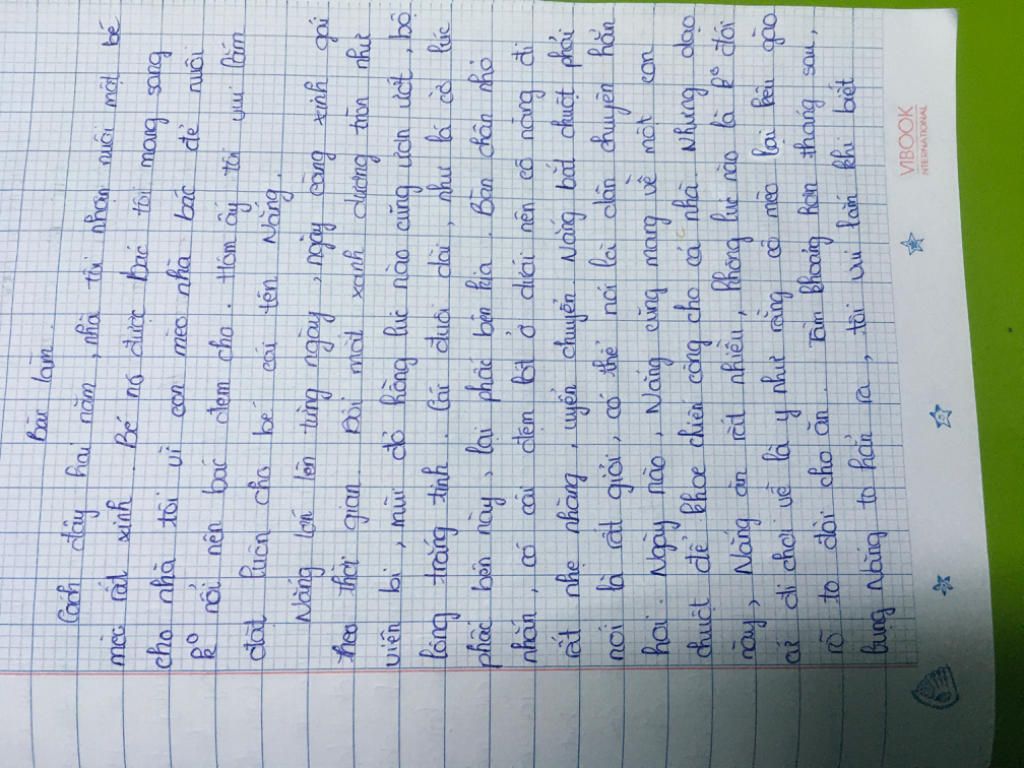 Bài làm.
Cách đây hai năm, nhà tôi nhận nuôi một bé
mèo rất xinh. Bé nó được bác tôi mang sang
cho nhà tôi vì con mèo nhà bác đẻ nuôi
kº nổi nên bác đem cho. Hôm ấy tôi vui lắm
đặt luôn cho bé cái tên Nắng.
Nắng lớn lên từng ngày, ngày càng xinh gái
theo thời gian. Đôi mắt xanh dương tròn như
viên bi, mũi đỏ hồng lúc nào cũng ươn ướt, bộ
lông trắng tinh. Cái đuôi dài, như lá cờ lúc
phấc bên này, lại phấc bên kia. Bàn chân nhỏ
nhắn, có cái đệm lót ở dưới nên cô nàng đi
rất nhẹ nhàng, uyển chuyển. Nắng bắt chuột phải
nói là rất giỏi, có thể nói là dân chuyên hẳn
hoi. Ngày nào, Nắng cũng mang về một con
chuột để khoe chiến công cho cả nhà. Nhưng dạo
này, Nắng ăn rất nhiều, không lúc nào là kº đói
cứ đi chơi về là y như rằng cô mèo lại kêu gào
rõ to đòi cho ăn. Tầm khoảng hơn tháng sau,
bụng Nắng to hẳn ra, tôi vui lắm khi biết
VIBOOK
INTERNATIONAL